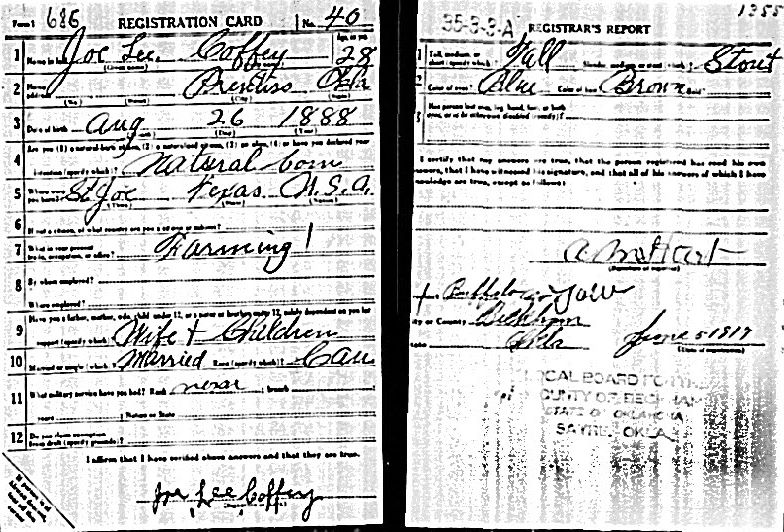 Form 1 686 REGISTRATION CARD No. 40
1 Name in full Joe Lee Coffey Age, in yrs. 28
(Given name) (Family name)
2 Home address Prentiss Okla
(No.) (Street) (City) (State)
3 Date of birth Aug 26 1888
(Month) (Day) (Year)
Are you (1) a natural-born citizen, (2) a naturalized citizen, (3) an alien, (4) or have you declared your
4 intention (specify which)? Natural born
5 Where were you born? St Joe Texas U.S.A.
(Town) (State) (Nation)
6 If not a citizen, of what country are you a citizen or subject?
7 What is your present trade, occupation, or office? Farming 1
8 By whom employed?
Where employed?
Have you a father, mother, wife, child under 12, or a sister or brother under 12, solely dependent on you for
9 support (specify which)? Wife + Children
10 Married or single (which)? Married Race (specify which)? Cau
11 What military service have you had? Rank none branch
years Nation or State
12 Do you claim exemption from draft (specify grounds)?
I affirm that I have verified above answers and that they are true.
Joe Lee Coffey
1355
35-3-3-A REGISTRAR'S REPORT
1 Tall, medium, or short (specify which)? Tall Slender, medium, or stout (which)? Stout
2 Color of eyes? Blue Color of hair? Brown Bald?
3 Has person lost arm, leg, hand, foot, or both
eyes, or is he otherwise disabled (specify)?
I certify that my answers are true, that the person registered has read his own
answers, that I have witnessed his signature, and that all of his answers of which I have
knowledge are true, except as follows:
(Signature of registrar)
Buffalo
City or County Beckham
State Okla June 5-1917
(Date of registration)
LOCAL BOARD FOR THE
COUNTY OF BECKHAM
STATE OF OKLAHOMA
SAYRE, OKLA.